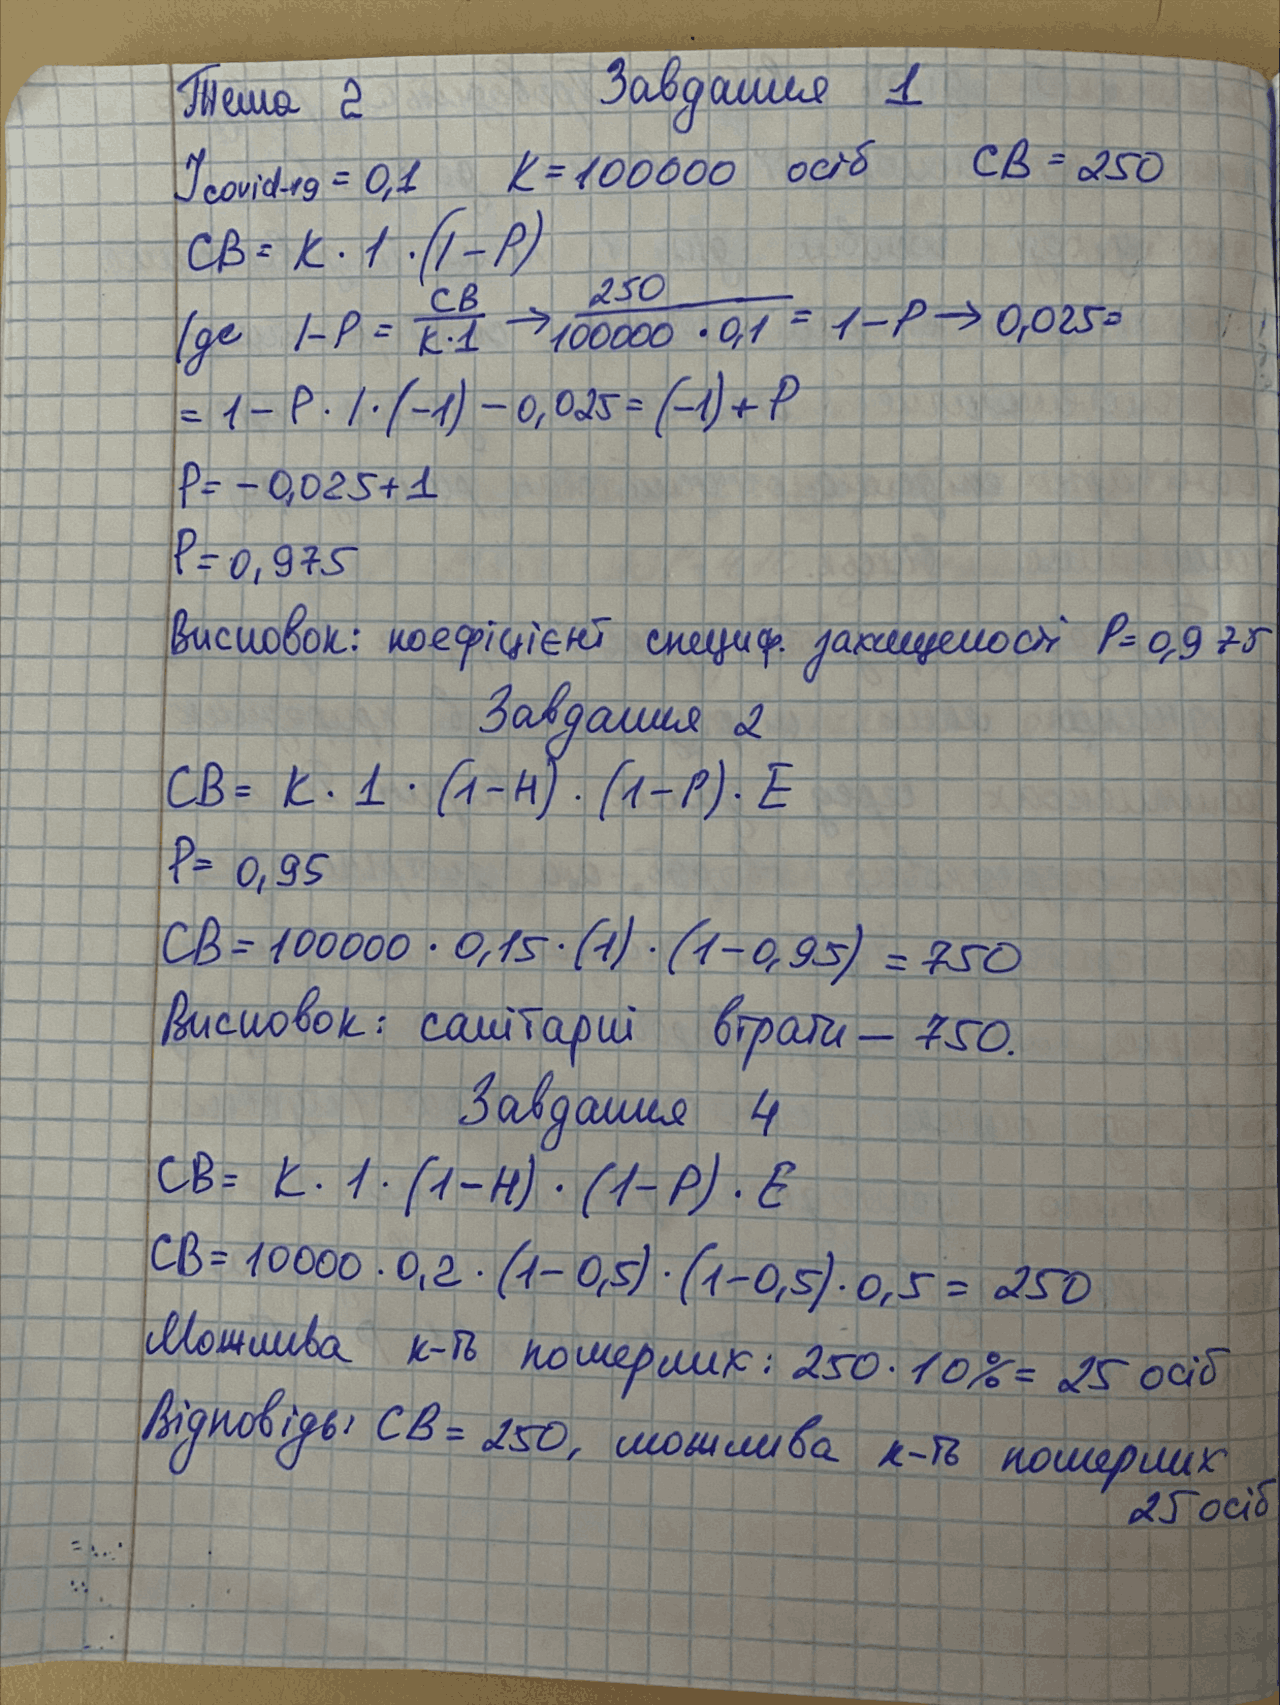 Тема 2 Завдання 1
Icovid-19 = 0,1 К = 100000 осіб СВ = 250
СВ = К · 1 · (1 - Р)
/де 1-Р = СВ / К·1 → 250 / 100000 · 0,1 = 1 - Р → 0,025 =
= 1 - Р · / · (-1) - 0,025 = (-1) + Р
Р = - 0,025 + 1
Р = 0,975
Висновок: коефіцієнт специф. захищеності Р = 0,975
Завдання 2
СВ = К · 1 · (1 - Н) · (1 - Р) · Е
Р = 0,95
СВ = 100000 · 0,15 · (1) · (1 - 0,95) = 750
Висновок: санітарні втрати – 750.
Завдання 4
СВ = К · 1 · (1 - Н) · (1 - Р) · Е
СВ = 10000 · 0,2 · (1 - 0,5) · (1 - 0,5) · 0,5 = 250
Можлива к-ть померлих: 250 · 10% = 25 осіб
Відповідь: СВ = 250, можлива к-ть померлих
25 осіб